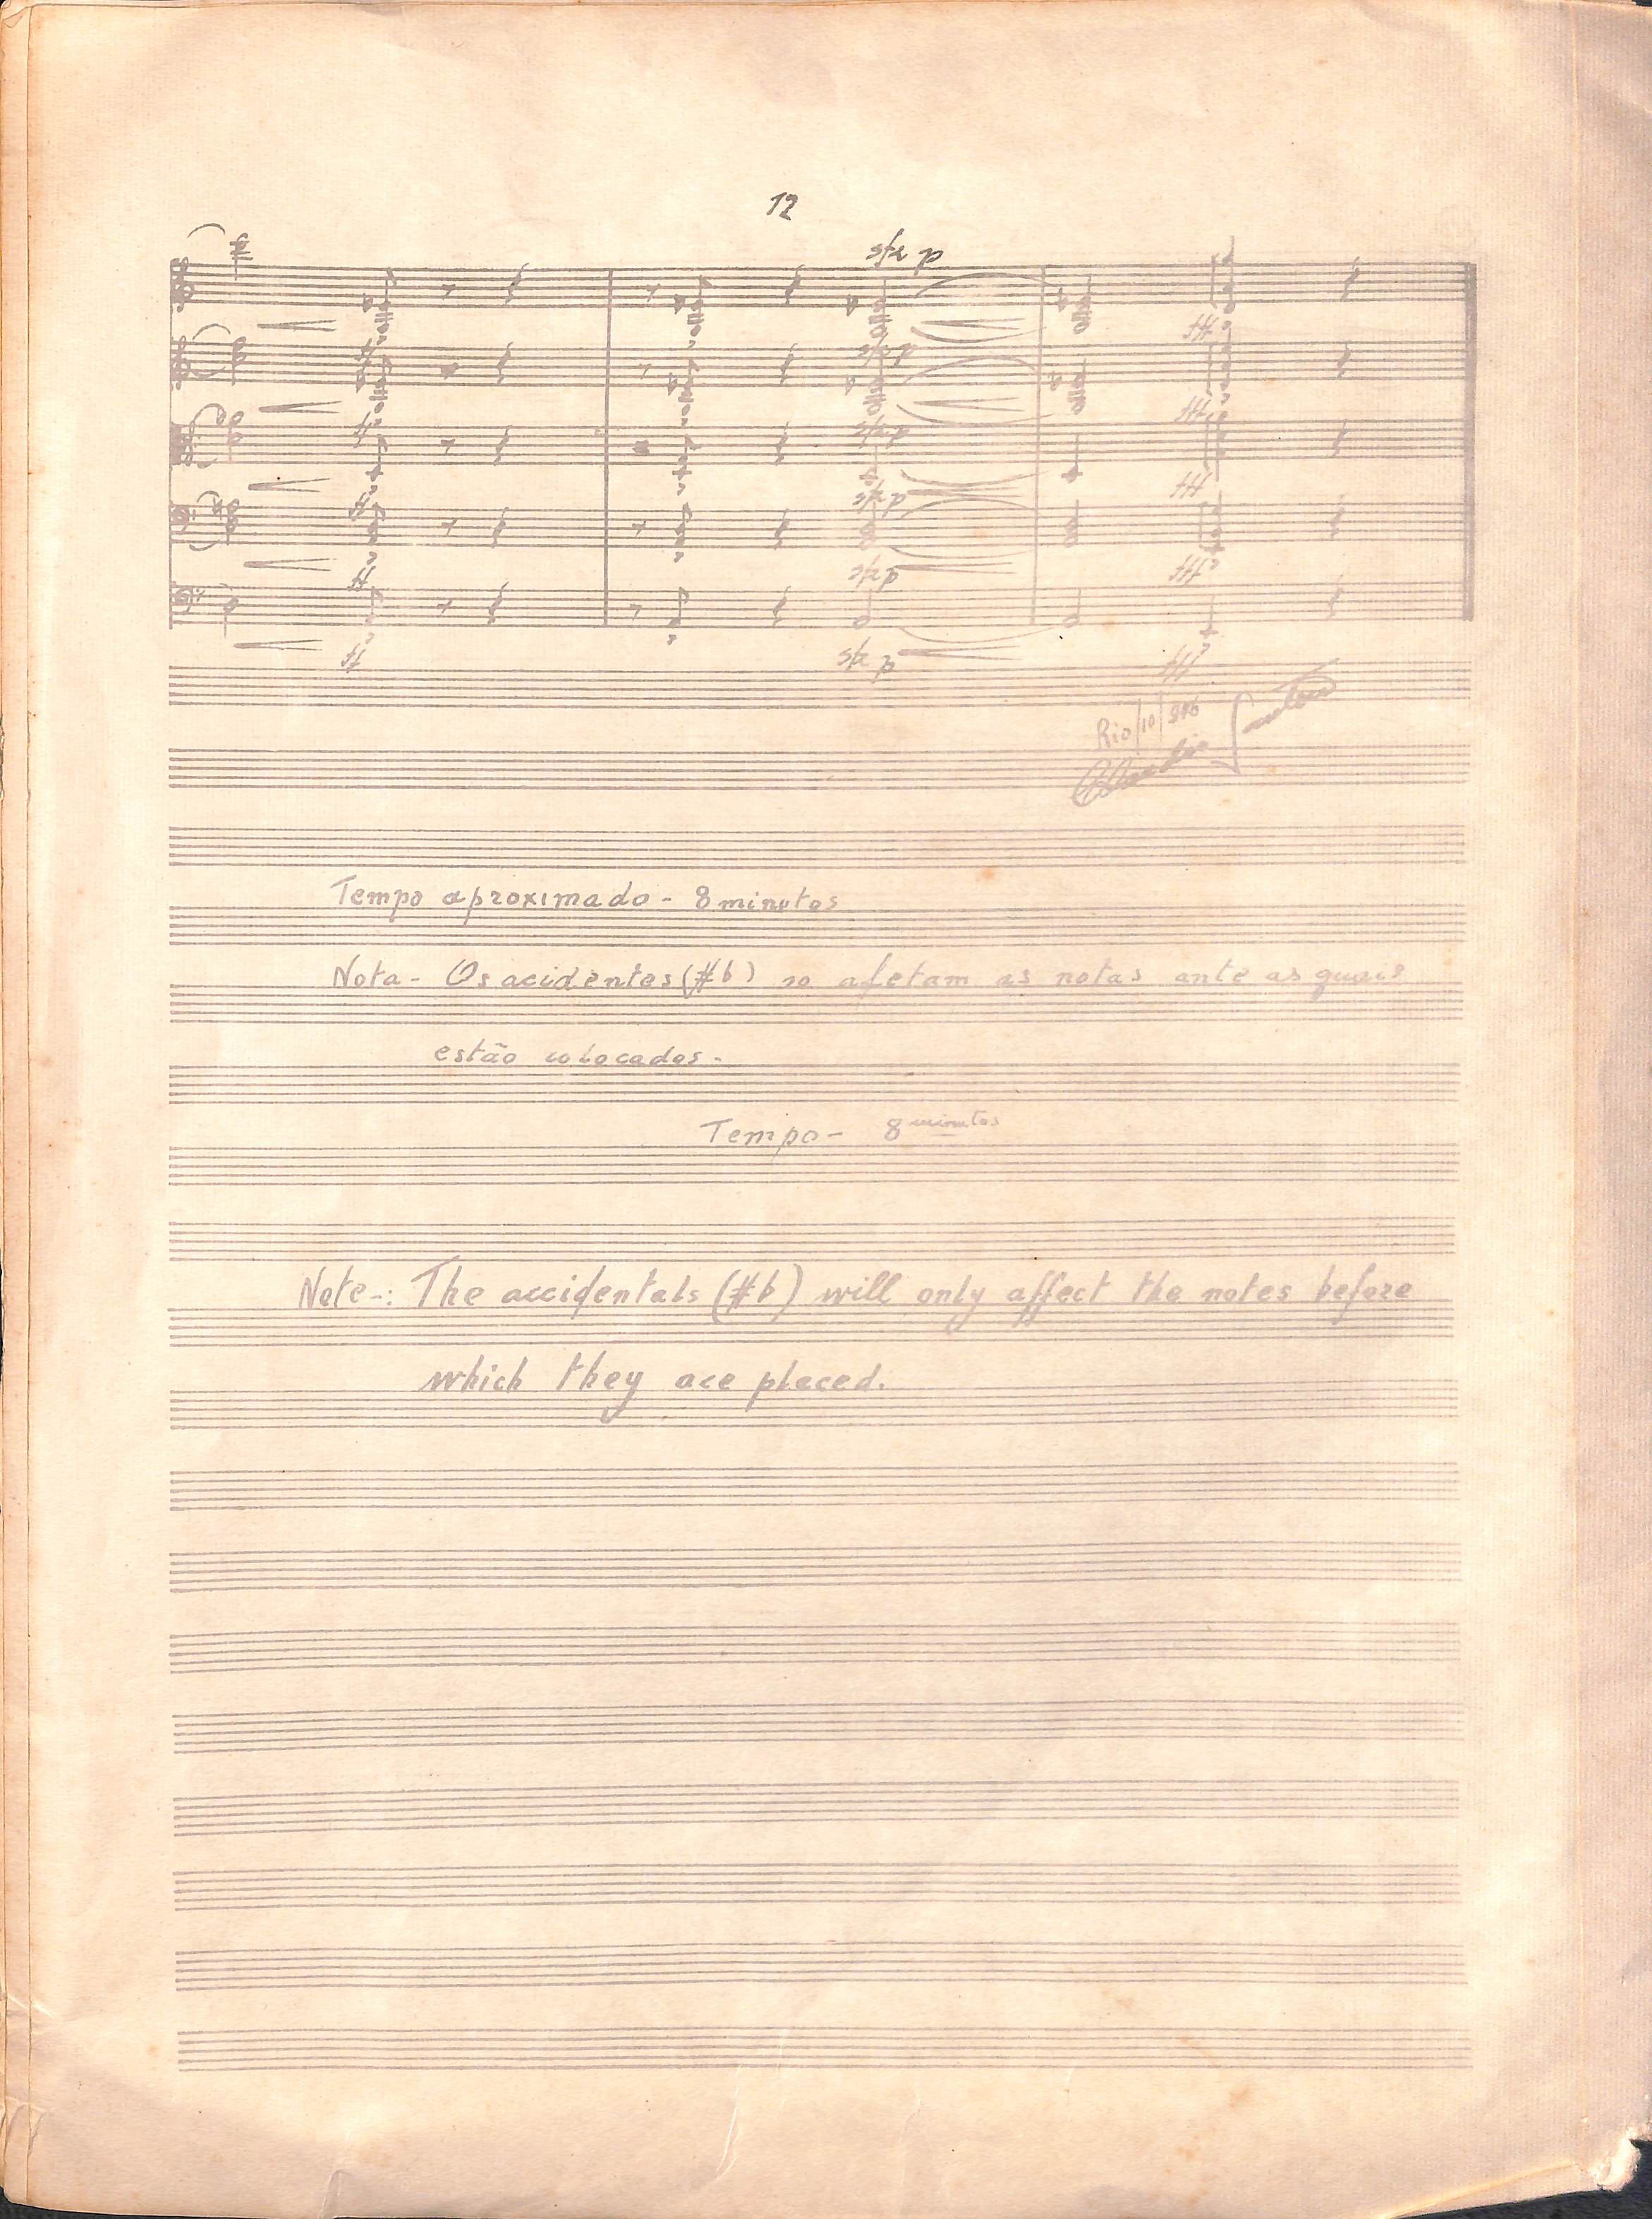 12
sfz p
ff
sfz p
fff
ff
sfz p
fff
ff
sfz p
fff
ff
sfz p
fff
ff
sfz p
fff
Rio/10/946
Claudio Santoro
Tempo aproximado - 8 minutos
Nota - Os acidentes (#b) so afetam as notas ante as quais
estão colocados -
Tempo - 8 minutos
Note -: The accidentals (#b) will only affect the notes before
which they are placed.